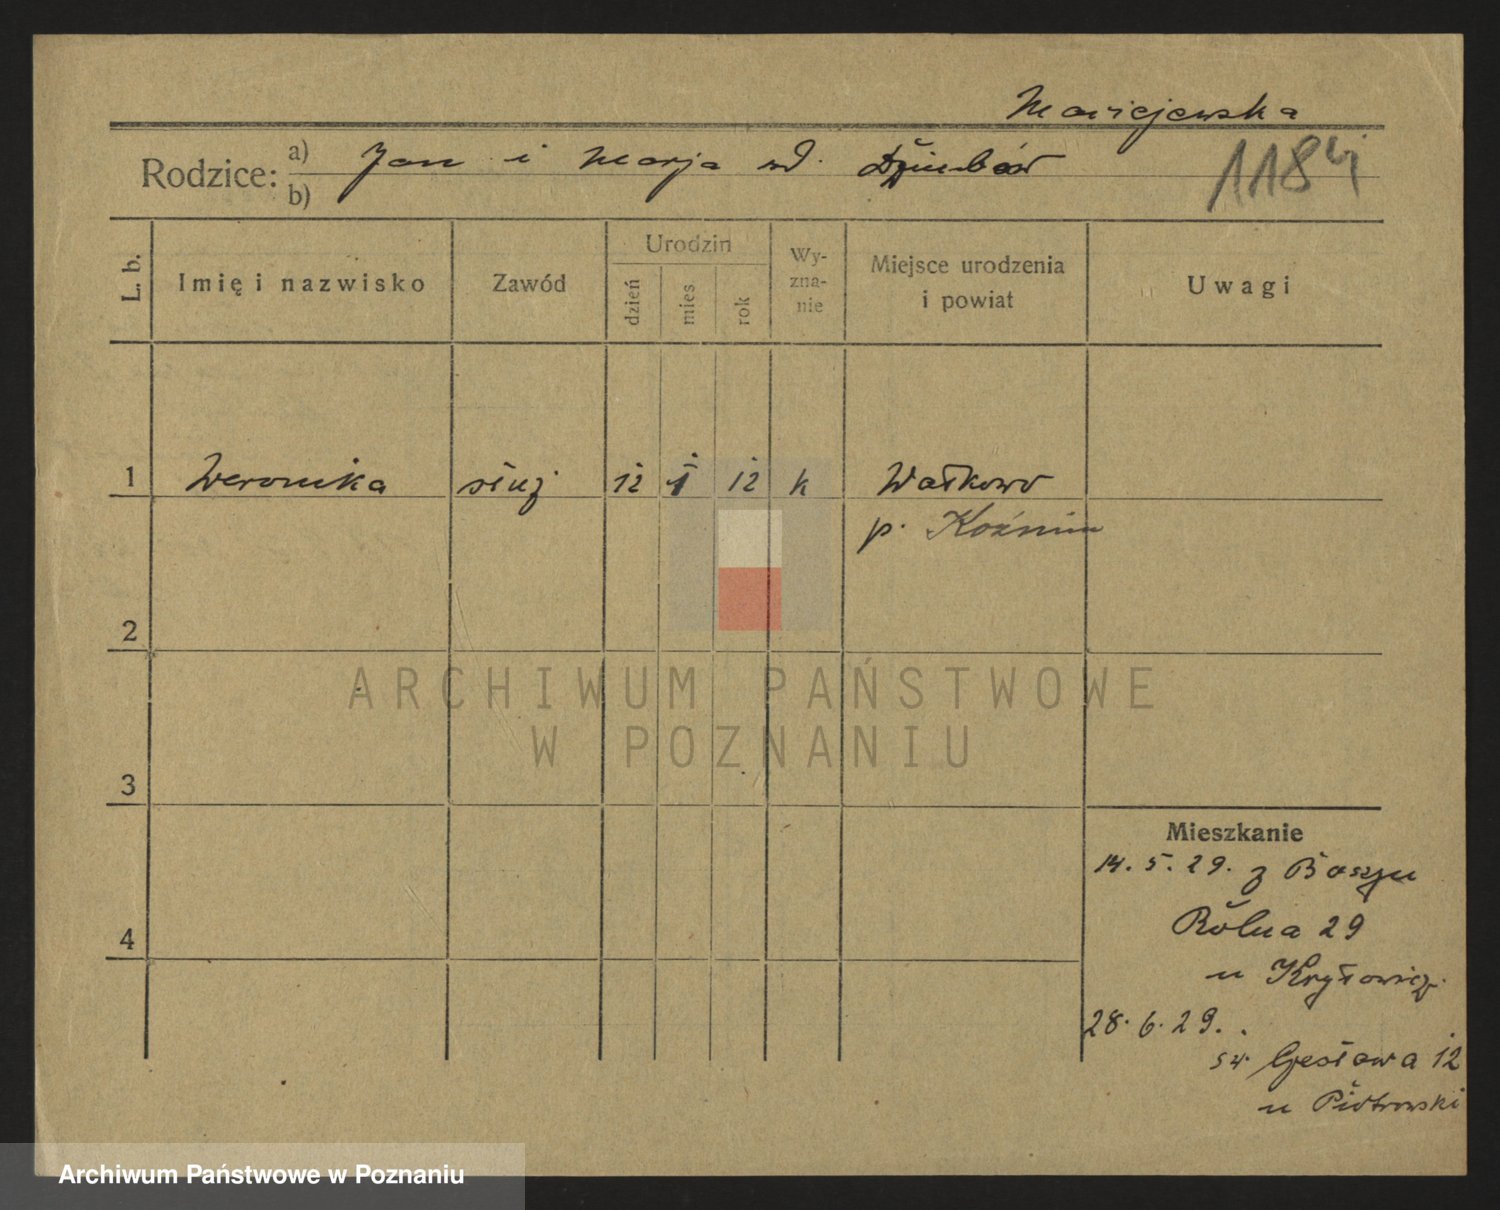 Maciejewska
Rodzice: a) b) Jan i Marja
118
L. b. Imię i nazwisko Zawód Urodzin dzień mies rok Wy-zna-nie Miejsce urodzenia i powiat Uwagi
1 Weronika służ 12 1 12 k Wałkowo
p. Koźmin
2
ARCHIWUM PAŃSTWOWE
W POZNANIU
3
Mieszkanie
14. 5. 29. z
4
Rolna 29
u
28. 6. 29.
św. Czesława 12
u Piotrowski
Archiwum Państwowe w Poznaniu